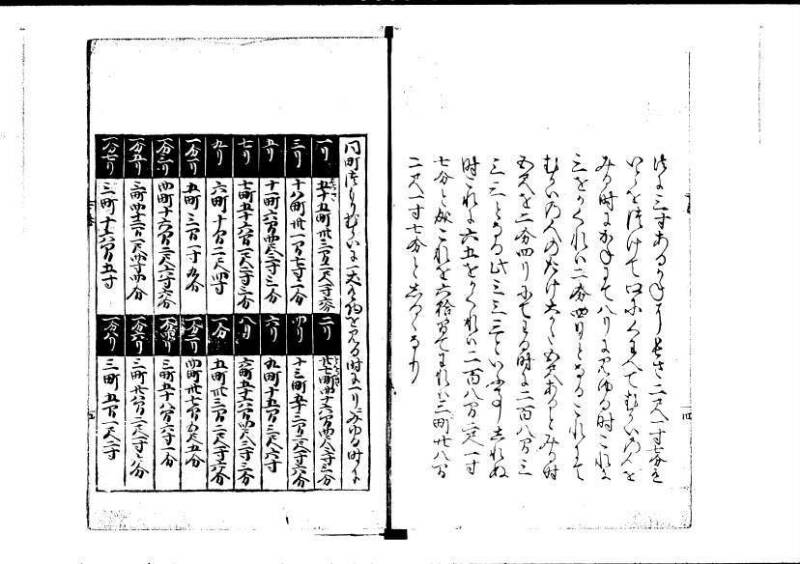 三寸ある 長さ二尺一寸七分を
つけて口にくわへてむかいの人を
みる時 八りに見ゆる時これに
三をかくれハ二分四りとなるこれにて
むかいの人のたけ 五尺ありとみる時
五尺を二分四りにてわる時に二百八間三
三三となる此三三三といふ
時これに六五をかくれハ二百八間二尺一寸
七分と成これを六拾間にてわれハ三町廿八間
二尺一寸七分としるゝなり
同町つもりむかいに一丈の物を見る時に一りにみゆる時に
一り 五十五町卅三間二尺二寸六分
二り 廿七町四十六間四尺三寸三分
三り 十八町卅一間七寸一分
四り 十三町五十三間二尺二寸六分
五り 十一町六間四尺二寸三分
六り 九町十五間二尺六寸
七り 七町五十六間一尺二寸三分
八り 六町五十六間四尺三寸三分
九り 六町十間二尺四寸
一分 五町卅三間二尺二寸六分
一分一り 五町三間一寸九分
一分二り 四町卅七間五尺五寸
一分三り 四町十六間二尺六寸六分
一分四り 三町五十八間六寸一分
一分五り 三町四十二間一尺四寸四分
一分六り 三町廿八間二尺二寸二分
一分七り 三町十六間五寸
一分八り 三町五間一尺二寸